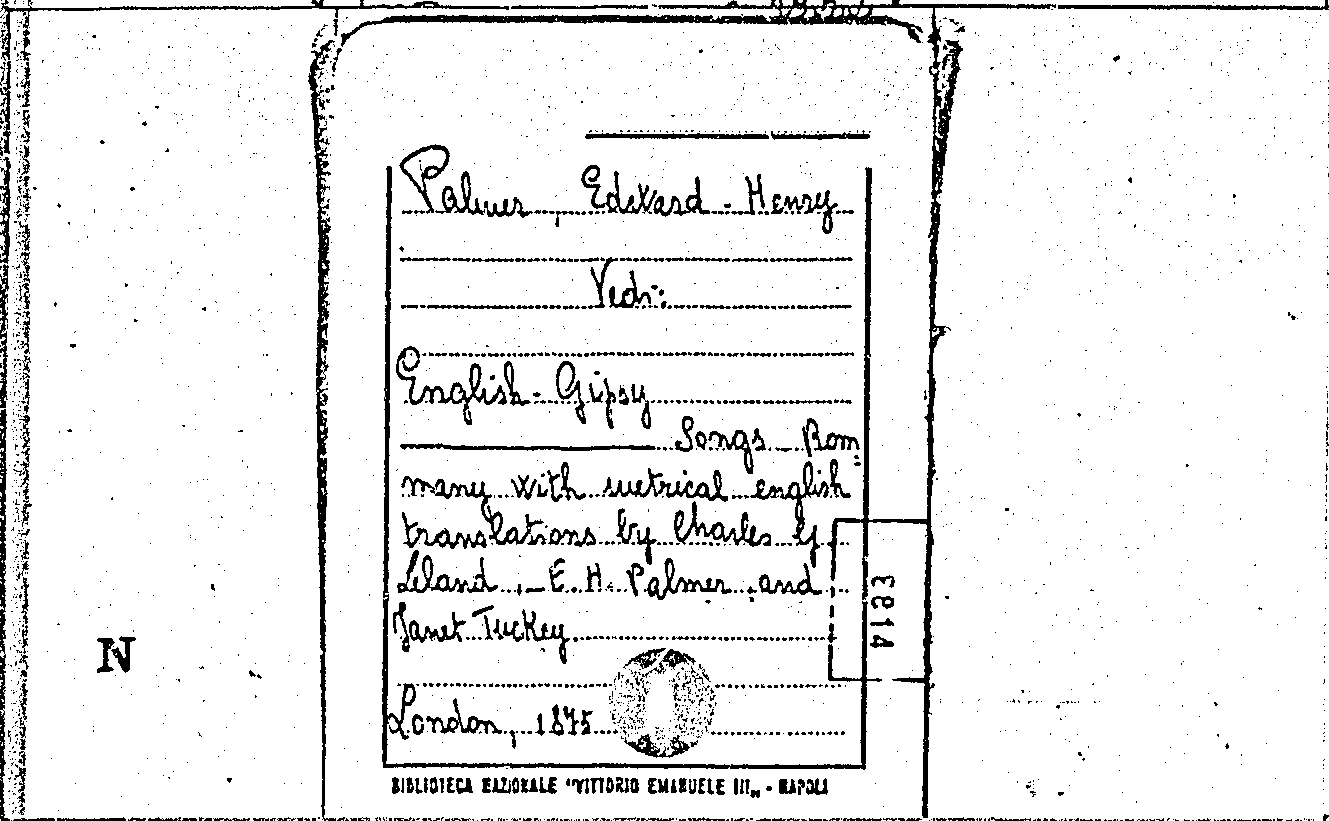 Palmer, Edward-Henry
Vedi:
English-Gipsy
Songs. Rom=
many with metrical english
translations by Charles G.
Leland, E. H. Palmer and
Janet Tuckey.
London, 1875
BIBLIOTECA NAZIONALE "VITTORIO EMANUELE III„ - NAPOLI
N